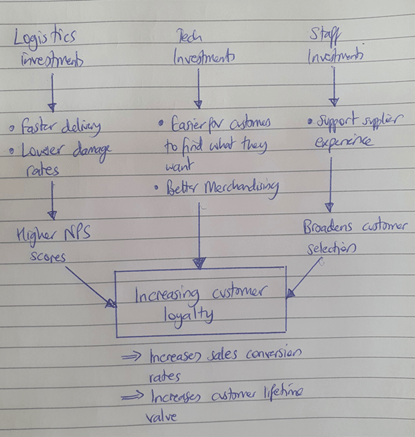 Logistics
investment
Tech
Investment
Staff
Investment
• Faster delivery
• Lower damage
rates
• Easier for customers
to find what they
want
• Better Merchandising
• Support supplier
experience
Higher NPS
scores
Broadens customer
selection
Increasing customer
loyalty
⇒ Increases sales conversion
rates
⇒ Increases customer lifetime
value